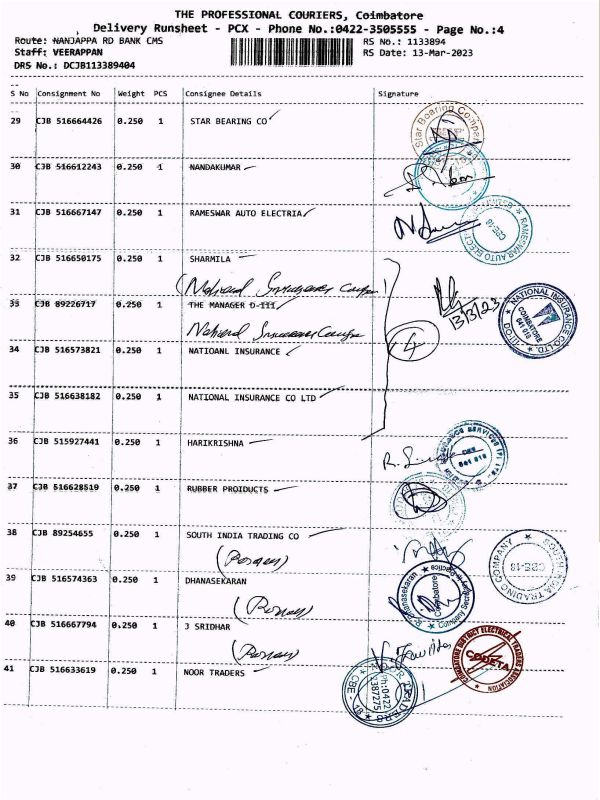 THE PROFESSIONAL COURIERS, Coimbatore
Delivery Runsheet - PCX - Phone No.:0422-3505555 - Page No.:4
Route: NANJAPPA RD BANK CMS RS No.: 1133894
Staff: VEERAPPAN RS Date: 13-Mar-2023
DRS No.: DCJB113389404
S No Consignment No Weight PCS Consignee Details Signature
29 CJB 516664426 0.250 1 STAR BEARING CO
Star Bearing Company
30 CJB 516612243 0.250 1 NANDAKUMAR
31 CJB 516667147 0.250 1 RAMESWAR AUTO ELECTRIA
CBE-18
32 CJB 516650175 0.250 1 SHARMILA
(National Insurance Company)
33 CJB 89226717 0.250 1 THE MANAGER D-III
13/3/23
NATIONAL INSURANCE CO LTD.
COIMBATORE
641 018
National Insurance Company
34 CJB 516573821 0.250 1 NATIOANL INSURANCE
35 CJB 516638182 0.250 1 NATIONAL INSURANCE CO LTD
36 CJB 515927441 0.250 1 HARIKRISHNA
641 018
37 CJB 516628519 0.250 1 RUBBER PROIDUCTS
38 CJB 89254655 0.250 1 SOUTH INDIA TRADING CO
SOUTH INDIA TRADING COMPANY
CBE-18
39 CJB 516574363 0.250 1 DHANASEKARAN
Coimbatore
40 CJB 516667794 0.250 1 J SRIDHAR
COIMBATORE DISTRICT ELECTRICAL TRADERS ASSOCIATION
CODETA
41 CJB 516633619 0.250 1 NOOR TRADERS
TRADERS
Ph:0422
CBE - 18